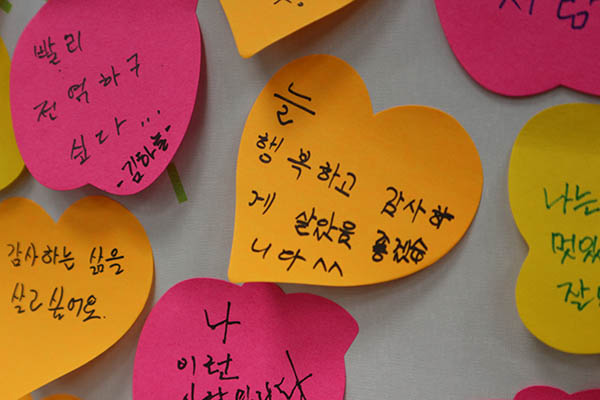 빨리
전역하구
싶다...
-김하늘-
늘
행복하고 감사하
게 살았음 좋겠습
니다^^
감사하는 삶을
살고 싶어요.
나
이런
나는
멋있
잘